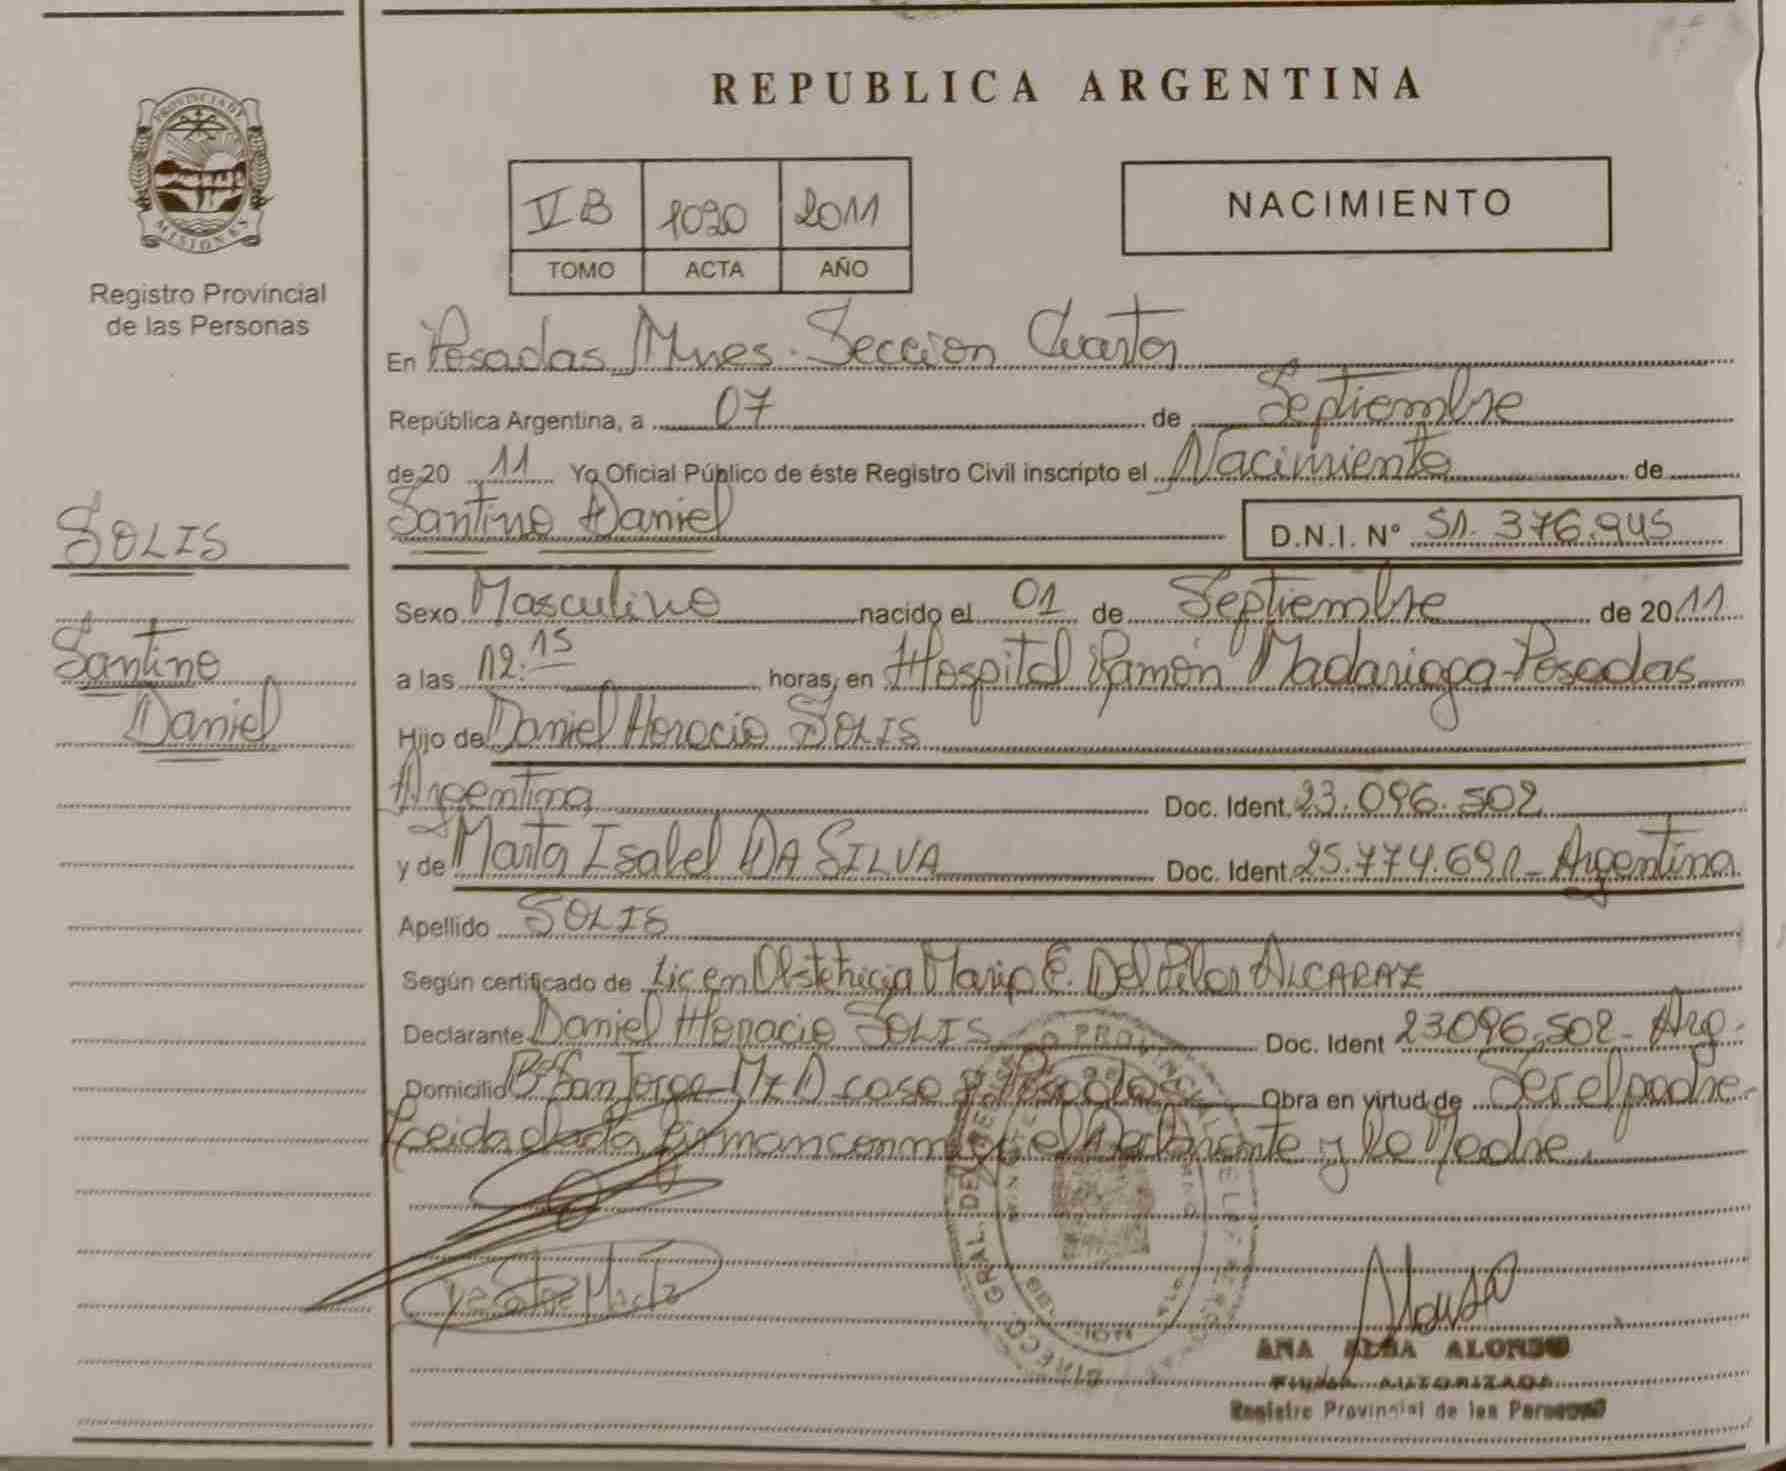 REPUBLICA ARGENTINA
PROVINCIA DE
MISIONES
Registro Provincial
de las Personas
V B 1020 2011
TOMO ACTA AÑO
NACIMIENTO
En Posadas Mnes. Seccion Cuarta
República Argentina, a 07 de Septiembre
de 20 11 Yo Oficial Público de éste Registro Civil inscripto el Nacimiento de
Santino Daniel D.N.I. N° 51.376.945
SOLIS
Santino
Daniel
Sexo Masculino nacido el 01 de Septiembre de 2011
a las 12:15 horas, en Hospital Ramón Madariaga-Posadas
Hijo de Daniel Horacio SOLIS
Argentina Doc. Ident. 23.096.502
y de Marta Isabel DA SILVA Doc. Ident. 25.774.691- Argentina
Apellido SOLIS
Según certificado de Lic en Obstetricia Maria E. Del Pilar ALCARAZ
Declarante Daniel Horacio SOLIS Doc. Ident 23.096.502- Arg.
Domicilio Bº San Jorge Mz D casa Posadas Obra en virtud de Ser el padre
Leida el acta firman conmigo el Declarante y la Madre.
ANA ALBA ALONSO
FIRMA AUTORIZADA
Registro Provincial de las Personas